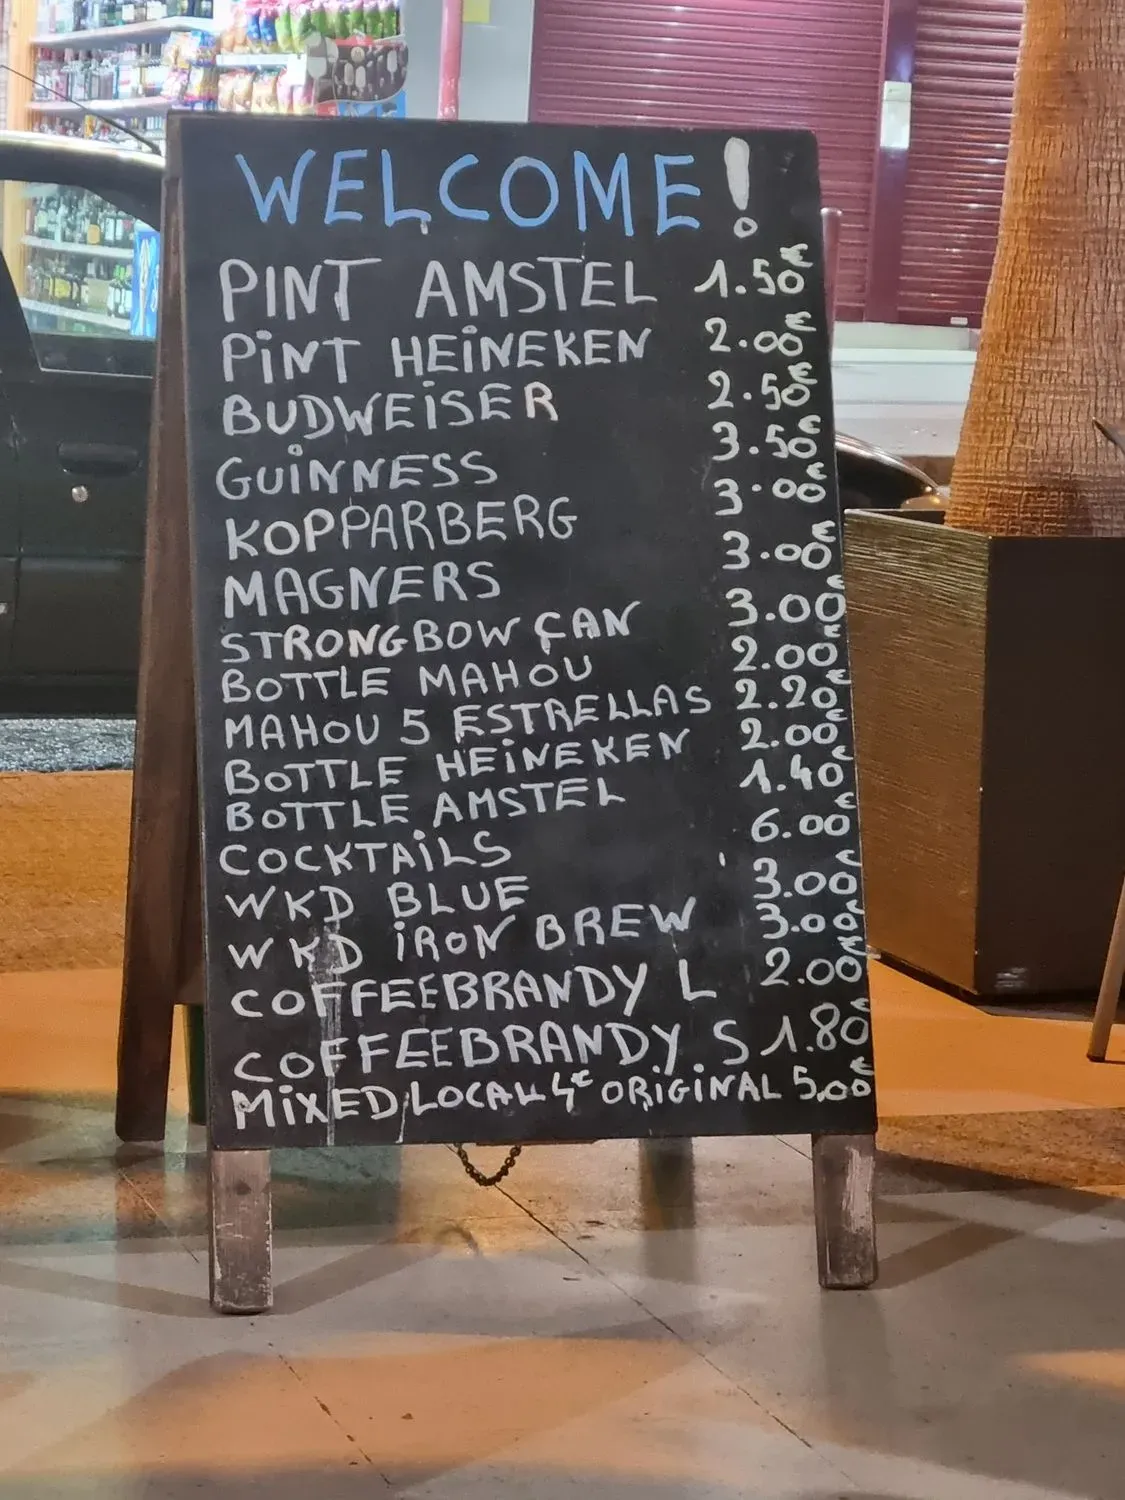 WELCOME!
PINT AMSTEL 1.50€
PiNT HEiNEKEN 2.00€
BUDWEiSER 2.50€
GUiNNESS 3.50€
KOPPARBERG 3.00€
MAGNERS 3.00€
STRONGBOW CAN 3.00€
BOTTLE MAHOU 2.00€
MAHOU 5 ESTRELLAS 2.20€
BOTTLE HEiNEKEN 2.00€
BOTTLE AMSTEL 1.40€
COCKTAiLS 6.00€
WKD BLUE 3.00€
WKD iRON BREW 3.00€
COFFEEBRANDY L 2.00€
COFFEEBRANDY S 1.80€
MiXED LOCAL 4€ ORiGiNAL 5,00€